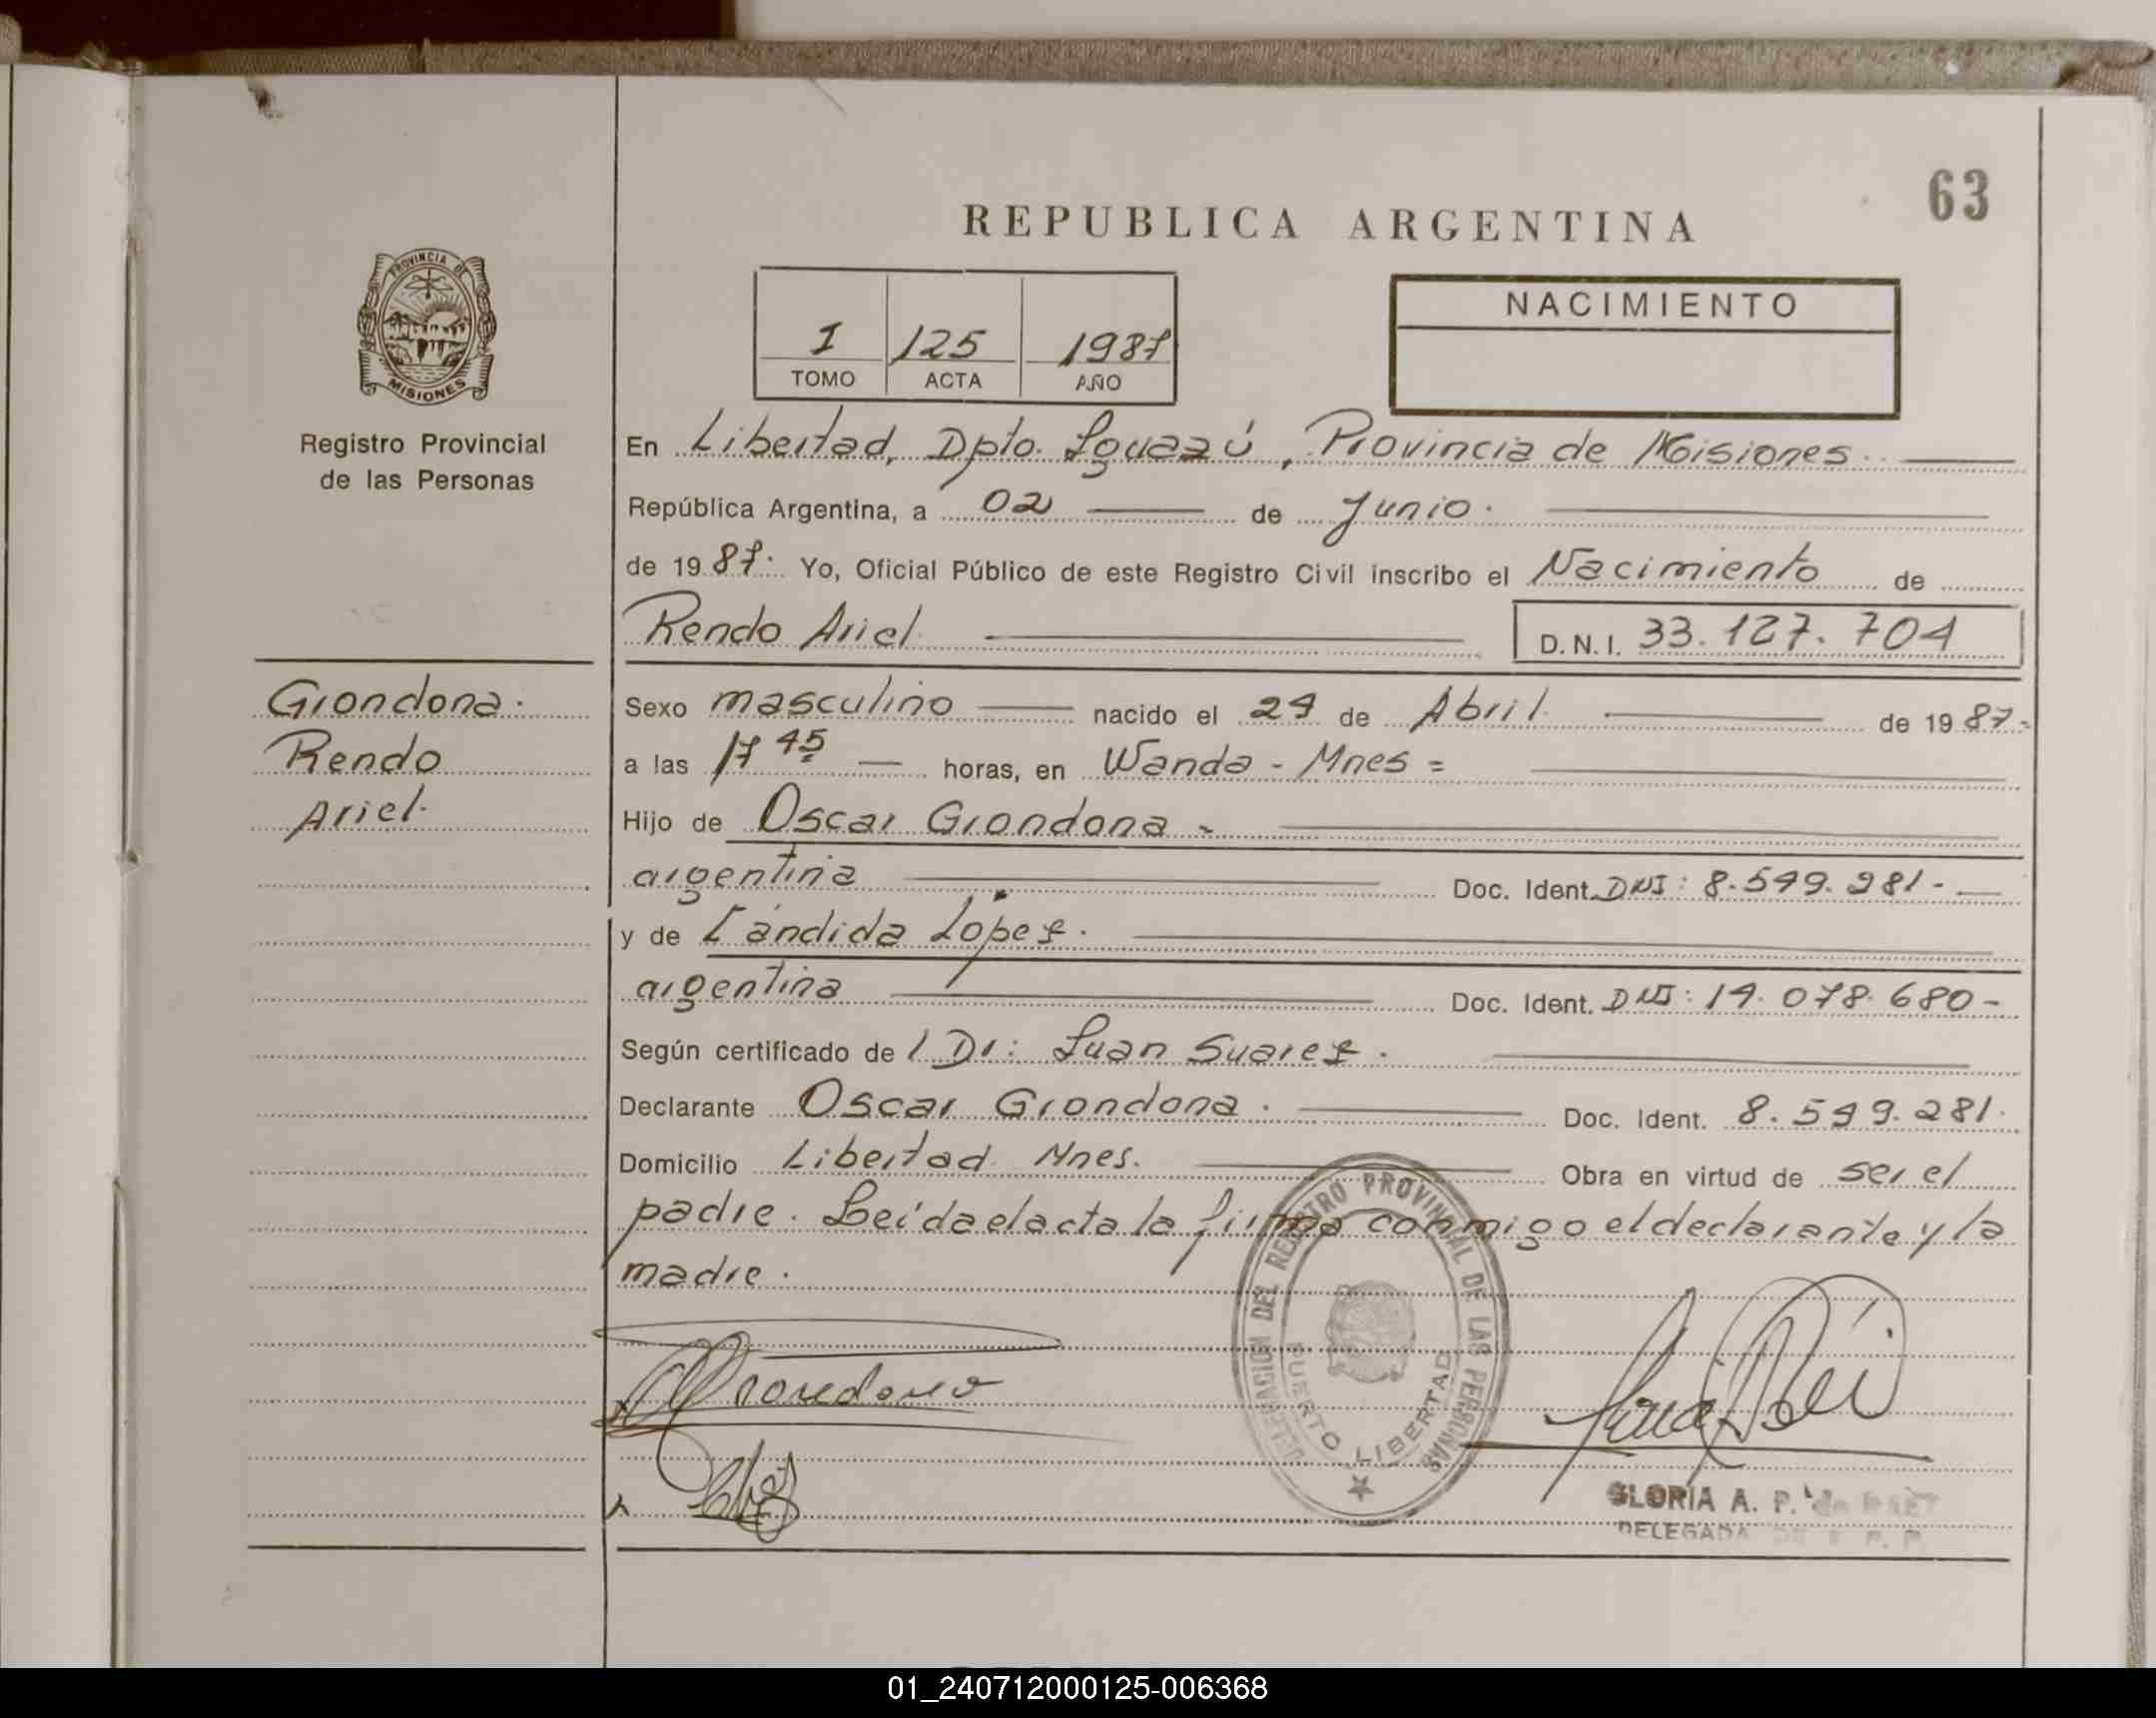 63
REPUBLICA ARGENTINA
PROVINCIA DE
MISIONES
Registro Provincial
de las Personas
I 125 1987
TOMO ACTA AÑO
NACIMIENTO
En Libertad, Dpto. Iguazú, Provincia de Misiones
República Argentina, a 02 de Junio.
de 1987. Yo, Oficial Público de este Registro Civil inscribo el Nacimiento de
Rendo Ariel D.N.I. 33.127.704
Grondona.
Rendo
Ariel.
Sexo masculino nacido el 29 de Abril de 1987.
a las 17 45 horas, en Wanda - Mnes =
Hijo de Oscar Grondona -
argentina Doc. Ident. DNI: 8.549.281.-
y de Cándida López.
argentina Doc. Ident. DNI: 14.078.680-
Según certificado del Dr: Juan Suarez.
Declarante Oscar Grondona. Doc. Ident. 8.549.281.
Domicilio Libertad. Mnes. Obra en virtud de ser el
padre. Leída el acta la firma conmigo el declarante y la
madre.
Grondona
DELEGACION DEL REGISTRO PROVINCIAL DE LAS PERSONAS
PUERTO LIBERTAD
GLORIA A. P. de
DELEGADA
01_240712000125-006368